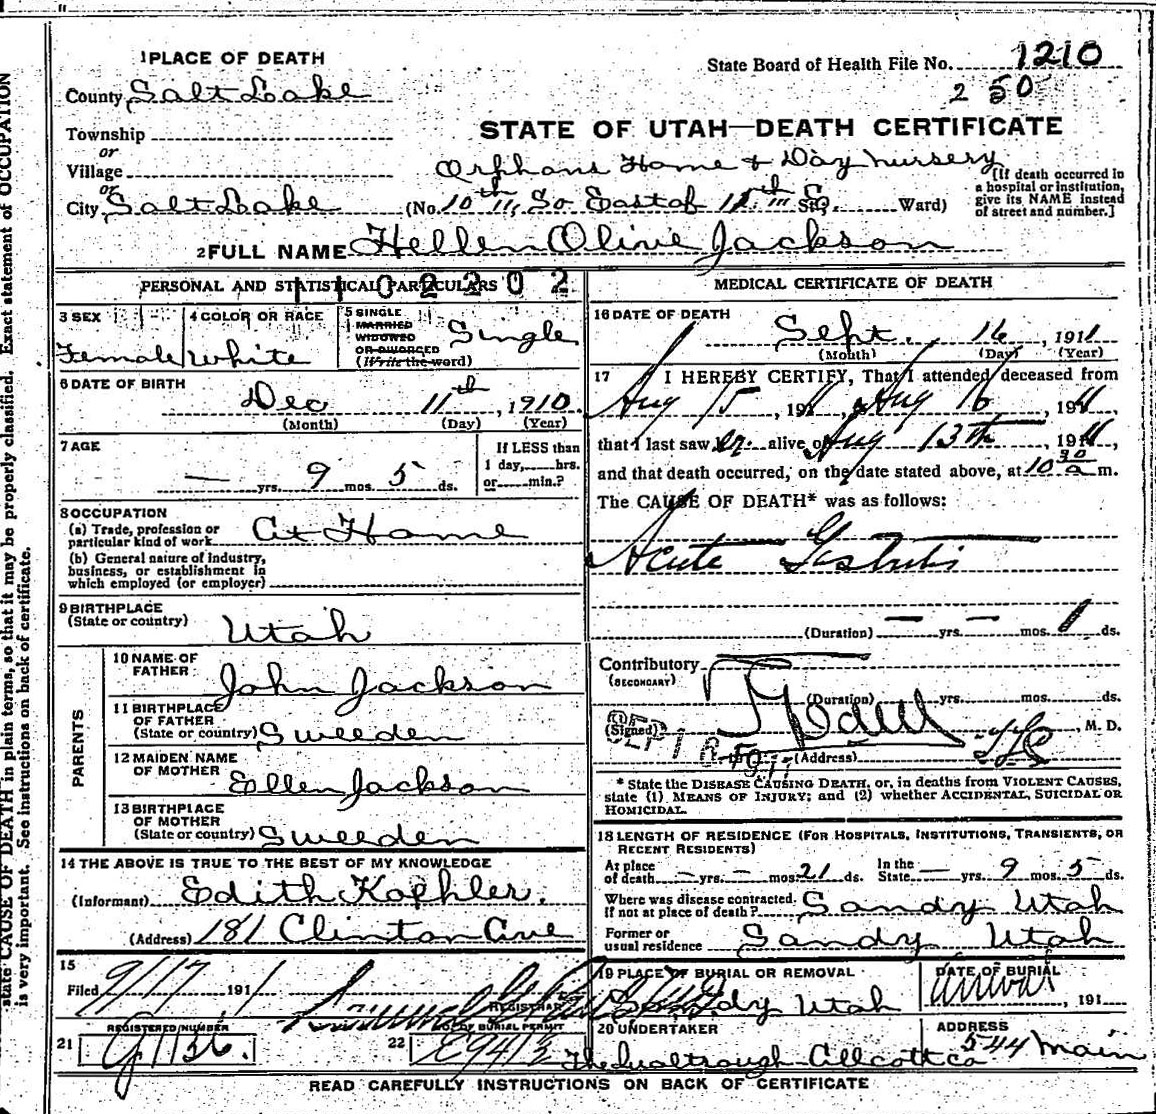 1 PLACE OF DEATH
State Board of Health File No. 1210
County Salt Lake
2 50
Township
STATE OF UTAH—DEATH CERTIFICATE
or
Village
Orphans Home & Day Nursery
or
City Salt Lake (No. 10th So East of St. Ward)
[If death occurred in a hospital or institution, give its NAME instead of street and number.]
2 FULL NAME Hellen Olive Jackson
PERSONAL AND STATISTICAL PARTICULARS
3 SEX
Female
4 COLOR OR RACE
White
5 SINGLE
MARRIED
WIDOWED
OR DIVORCED
(Write the word)
Single
6 DATE OF BIRTH
Dec 11th, 1910
(Month) (Day) (Year)
7 AGE
— yrs. 9 mos. 5 ds.
If LESS than
1 day, hrs.
or min.?
8 OCCUPATION
(a) Trade, profession or
particular kind of work At Home
(b) General nature of industry,
business, or establishment in
which employed (or employer)
9 BIRTHPLACE
(State or country)
Utah
PARENTS
10 NAME OF
FATHER
John Jackson
11 BIRTHPLACE
OF FATHER
(State or country) Sweeden
12 MAIDEN NAME
OF MOTHER
Ellen Jackson
13 BIRTHPLACE
OF MOTHER
(State or country) Sweeden
14 THE ABOVE IS TRUE TO THE BEST OF MY KNOWLEDGE
(Informant) Edith Koehler.
(Address) 181 Clinton Ave
15
Filed 9/17 1911
REGISTRAR
REGISTERED NUMBER
21
NO. OF BURIAL PERMIT
22 E9412
MEDICAL CERTIFICATE OF DEATH
16 DATE OF DEATH
Sept. 16, 1911
(Month) (Day) (Year)
17 I HEREBY CERTIFY, That I attended deceased from
Aug 15, 1911, Aug 16, 1911,
that I last saw er alive on Aug 13th, 1911
and that death occurred, on the date stated above, at 10 30 a m.
The CAUSE OF DEATH* was as follows:
Acute Gastritis
(Duration) — yrs. — mos. 1 ds.
Contributory
(SECONDARY)
(Duration) yrs. mos. ds.
(Signed) , M. D.
(Address)
* State the DISEASE CAUSING DEATH, or, in deaths from VIOLENT CAUSES,
state (1) MEANS OF INJURY; and (2) whether ACCIDENTAL, SUICIDAL OR
HOMICIDAL.
18 LENGTH OF RESIDENCE (FOR HOSPITALS, INSTITUTIONS, TRANSIENTS, OR
RECENT RESIDENTS)
At place
of death — yrs. — mos. 21 ds.
In the
State — yrs. 9 mos. 5 ds.
Where was disease contracted.
If not at place of death? Sandy Utah
Former or
usual residence Sandy Utah
19 PLACE OF BURIAL OR REMOVAL
Sandy Utah
DATE OF BURIAL
, 191
20 UNDERTAKER
ADDRESS
544 Main
READ CAREFULLY INSTRUCTIONS ON BACK OF CERTIFICATE
state CAUSE OF DEATH in plain terms, so that it may be properly classified. Exact statement of OCCUPATION
is very important. See instructions on back of certificate.